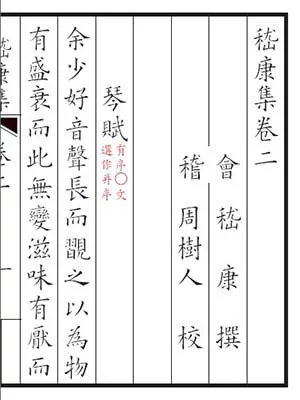 嵇康集卷二
會 嵇 康 撰
稽 周樹人 校
琴賦
有序○文
選作并序
余少好音聲長而翫之以為物
有盛衰而此無變滋味有厭而
嵇康集
卷二
一